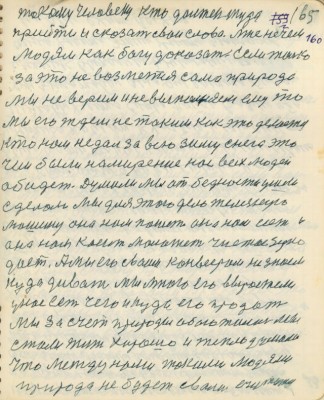 такому человеку кто должен туда 165
прийти и сказать свои слова мне нечем 160
людям как богу доказать Если только
за это не возмется само природа
мы не верим и не выполняем ему то
мы его ждем не таким как это делается
кто нам не дал за всю зиму снега это
чем были намерение нас всех людей
обидет. Думали мы от бедности ушли
сделали мы для этого дело железную
машину она нам пашет она нам сеет и
она нам косит молотит чистое зерно
дает. А мы его своим конвеером не знаем
куда девать мы много его вырастем
у нас ест чего и куда его продат
мы за счет природы обжились мы
стали жит хорошо и тепло думали
что между нами такими людями
природа не будет своим